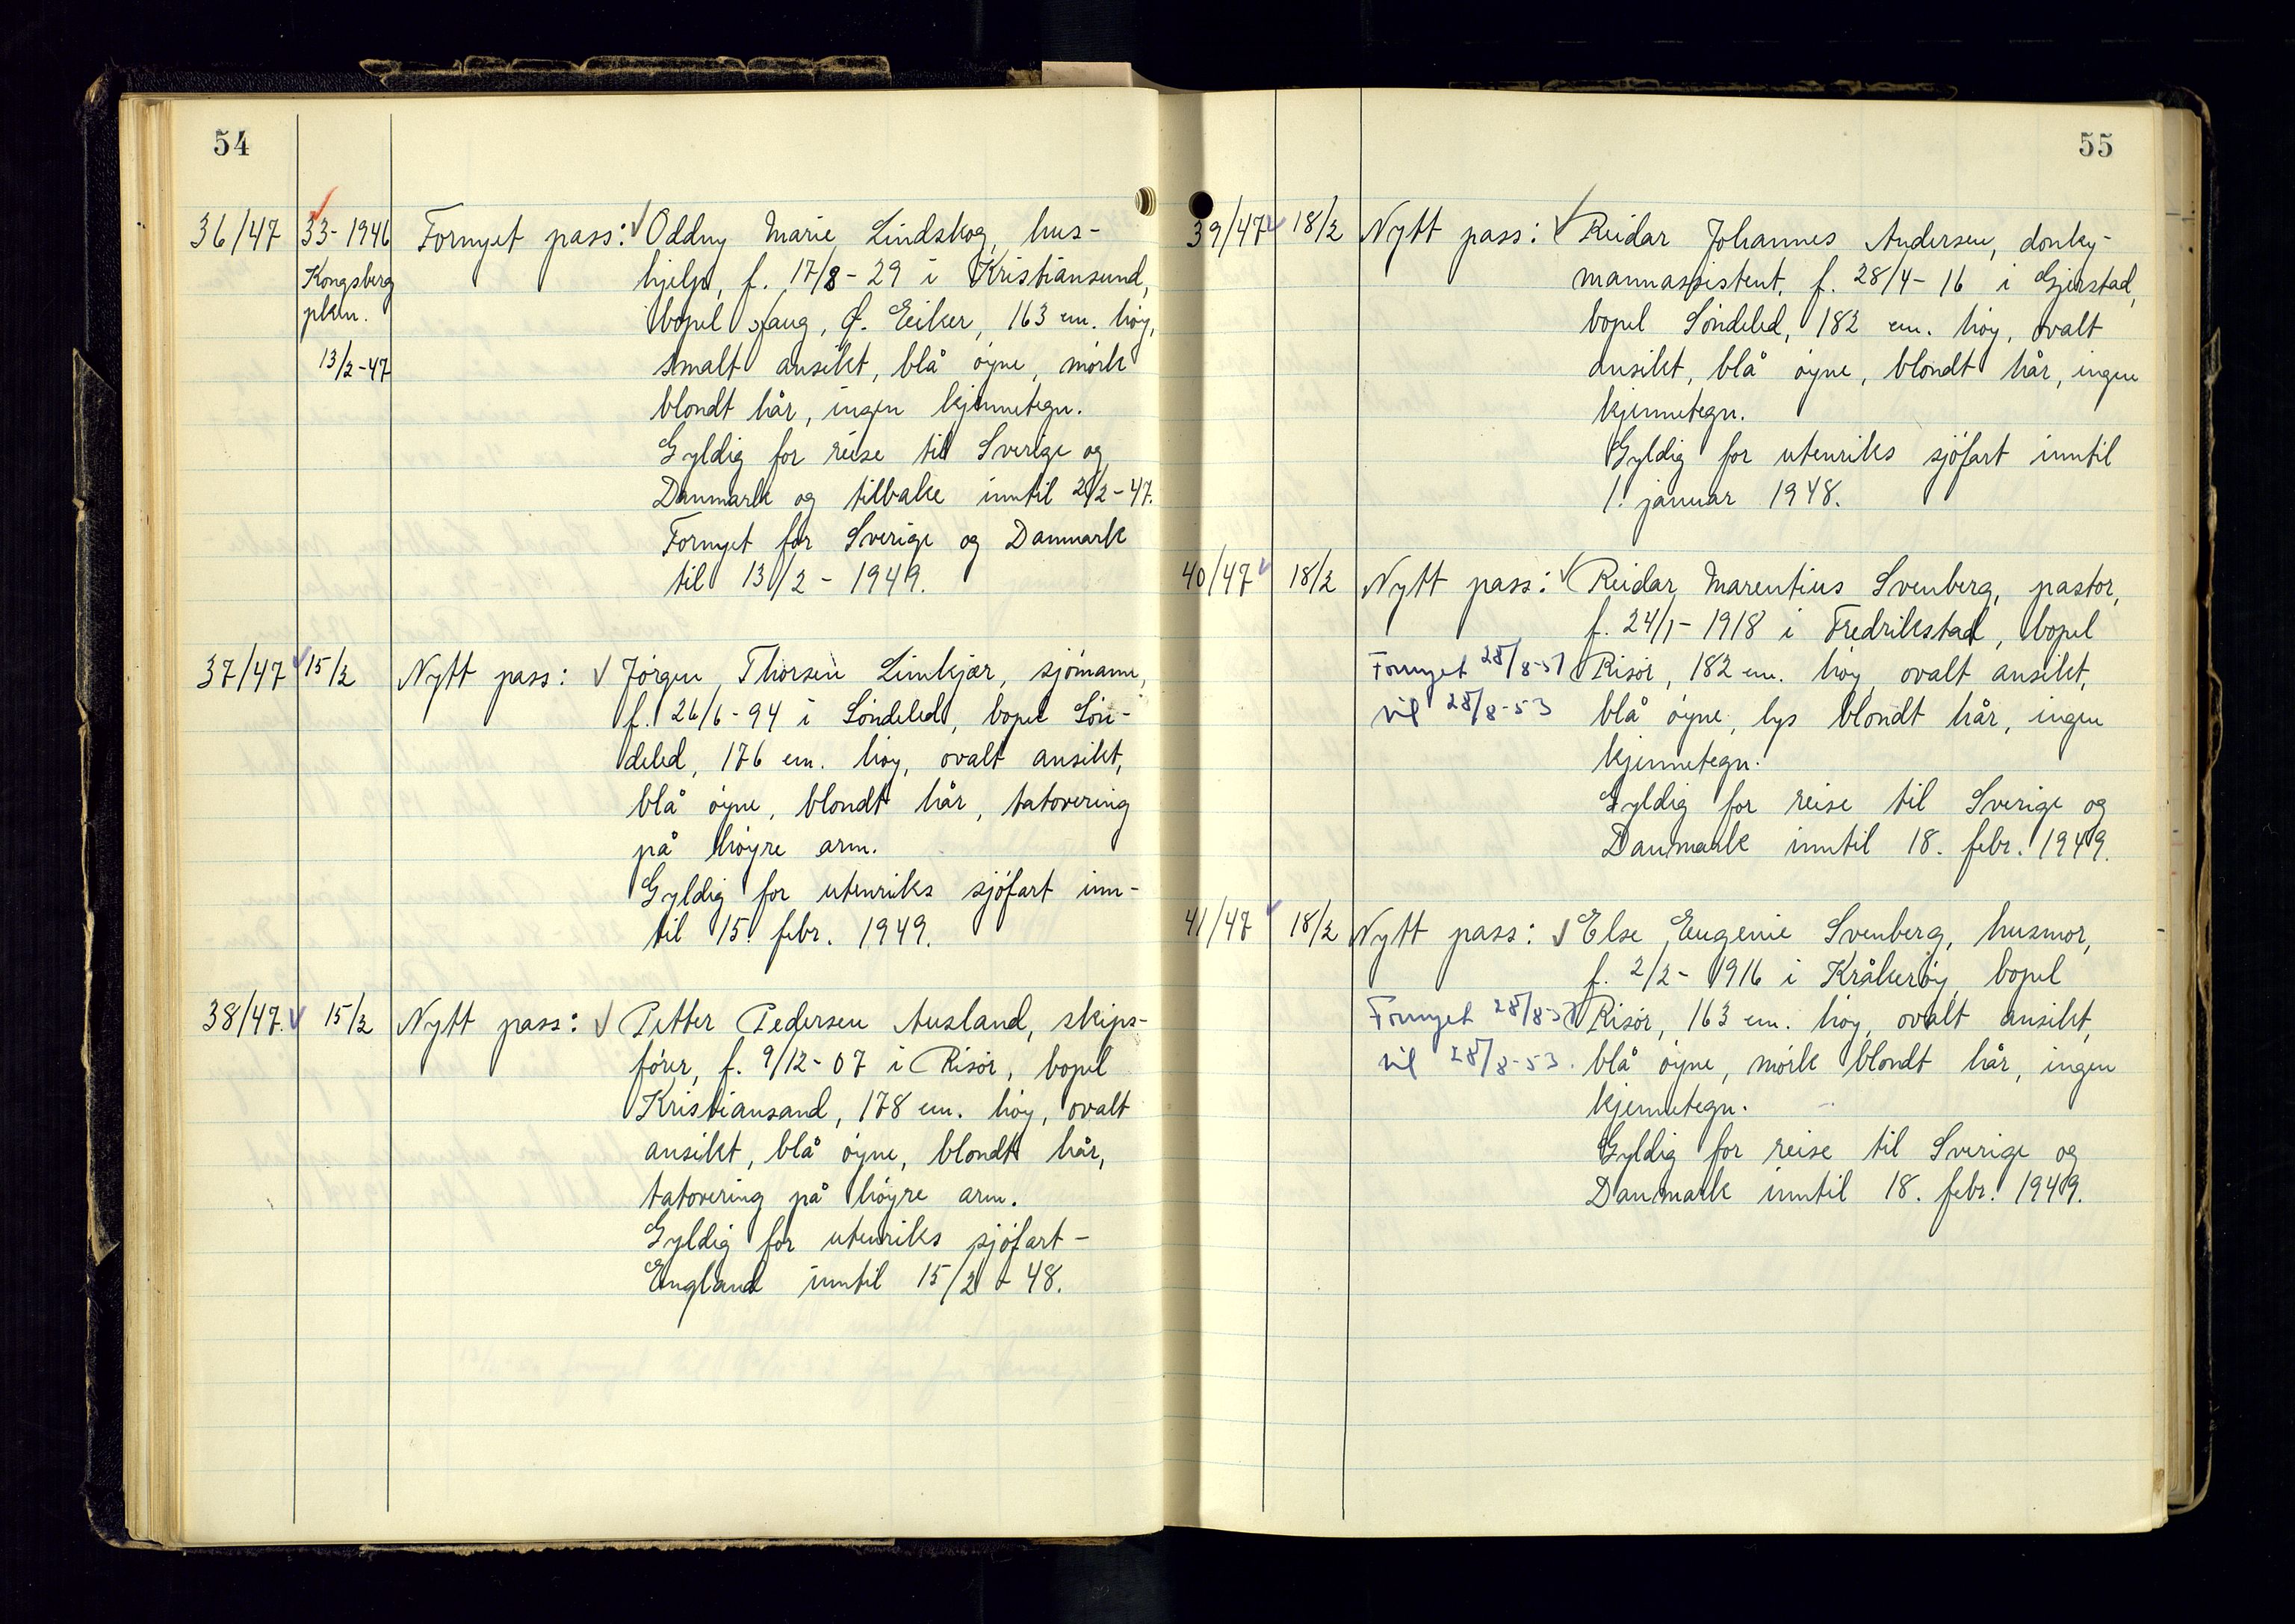 54
36/47 33-1946 Fornyet pass: Oddny Marie Lindskog, hus-
Kongsberg hjelp, f. 17/8-29 i Kristiansund,
pkm. bopel Haug, Ø. Eiker, 163 cm. høy,
13/2-47 smalt ansikt, blå øyne, mørk
blondt hår, ingen kjennetegn.
Gyldig for reise til Sverige og
Danmark og tilbake inntil 2/2-47.
Fornyet for Sverige og Danmark
til 13/2-1949.
37/47 15/2 Nytt pass: Jørgen Thorsen Linkjær, sjømann,
f. 26/6-94 i Søndeled, bopel Søn-
deled, 176 cm. høy, ovalt ansikt,
blå øyne, blondt hår, tatovering
på høyre arm.
Gyldig for utenriks sjøfart inn-
til 15. febr. 1949.
38/47. 15/2 Nytt pass: Petter Pedersen Ausland, skips-
fører, f. 9/12-07 i Risør, bopel
Kristiansand, 178 cm. høy, ovalt
ansikt, blå øyne, blondt hår,
tatovering på høyre arm.
Gyldig for utenriks sjøfart -
England inntil 15/2-48.
55
39/47 18/2 Nytt pass: Reidar Johannes Andersen, donky-
mannassistent, f. 28/4-16 i Gjerstad,
bopel Søndeled, 182 cm. høy, ovalt
ansikt, blå øyne, blondt hår, ingen
kjennetegn.
Gyldig for utenriks sjøfart inntil
1. januar 1948.
40/47 18/2 Nytt pass: Reidar Marentius Svenberg, pastor,
f. 24/1-1918 i Fredrikstad, bopel
Fornyet 28/8-51 Risør, 182 cm. høy, ovalt ansikt,
til 28/8-53 blå øyne, lys blondt hår, ingen
kjennetegn.
Gyldig for reise til Sverige og
Danmark inntil 18. febr. 1949.
41/47 18/2 Nytt pass: Else Eugenie Svenberg, husmor,
f. 2/2-1916 i Kråkerøy, bopel
Fornyet 28/8-51 Risør, 163 cm. høy, ovalt ansikt,
til 28/8-53. blå øyne, mørk blondt hår, ingen
kjennetegn.
Gyldig for reise til Sverige og
Danmark inntil 18. febr. 1949.